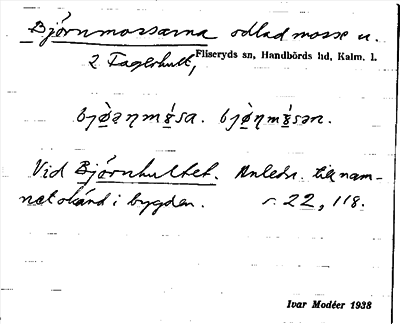 Björnmossarna odlad mosse u.
2 Fagerhult, Fliseryds sn, Handbörds hd, Kalm. l.
Vid Björnhultet. Anledn. till nam-
net okänd i bygden. r. 22, 118.
Ivar Modéer 1938